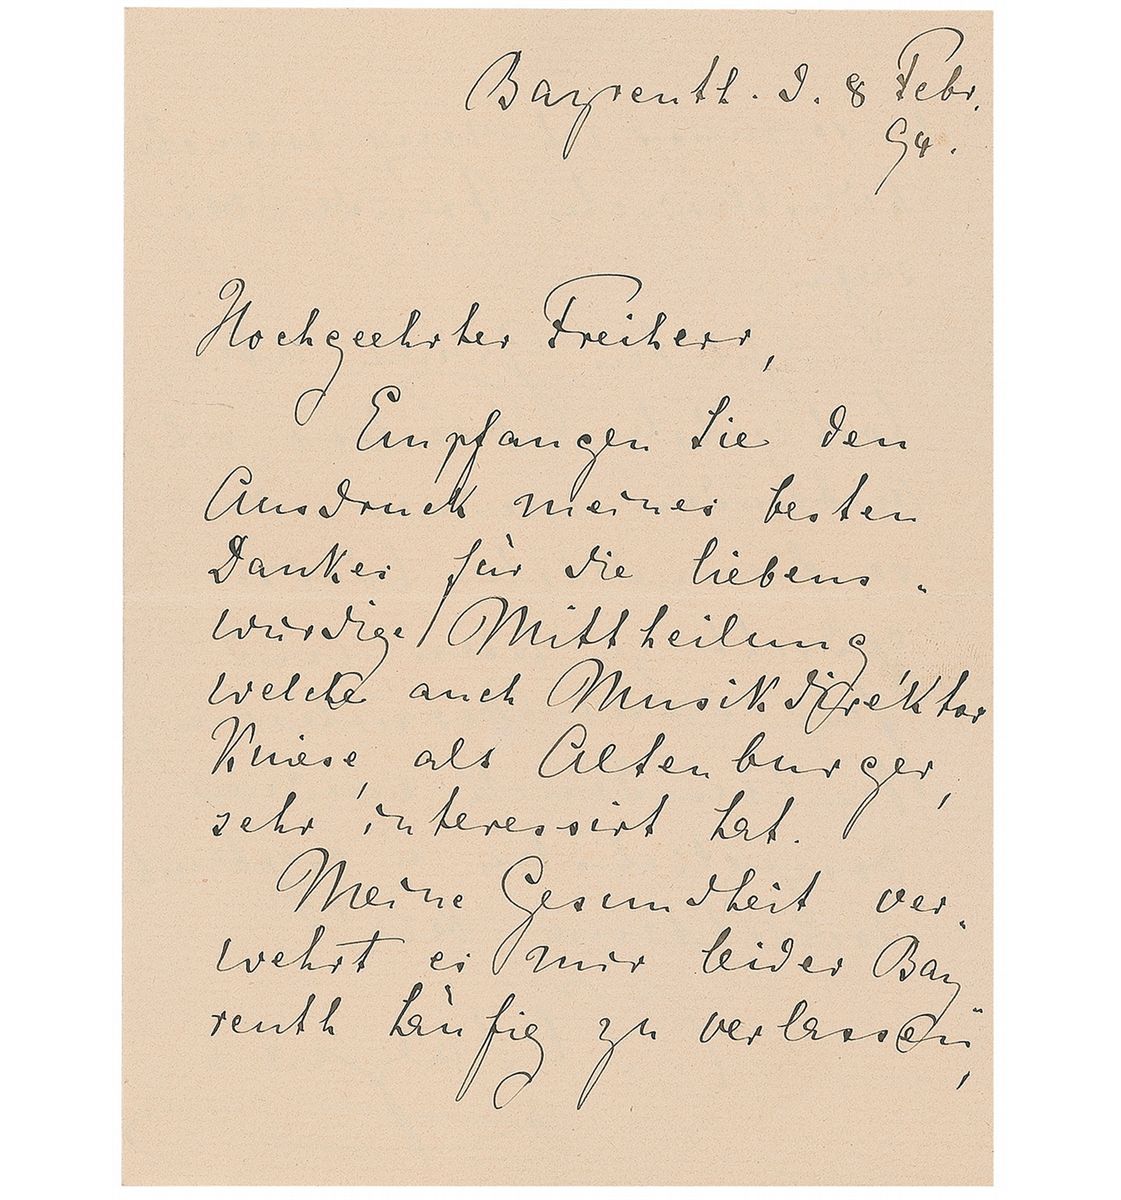 Bayreuth. d. 8 Febr.
94.
Hochgeehrter Freiherr,
Empfangen Sie den
Ausdruck meines besten
Dankes für die liebens-
würdige Mittheilung
welche auch Musikdirektor
Kniese, als Altenburger,
sehr interessirt hat.
Meine Gesundheit ver-
wehrt es mir leider Bay-
reuth häufig zu verlassen,